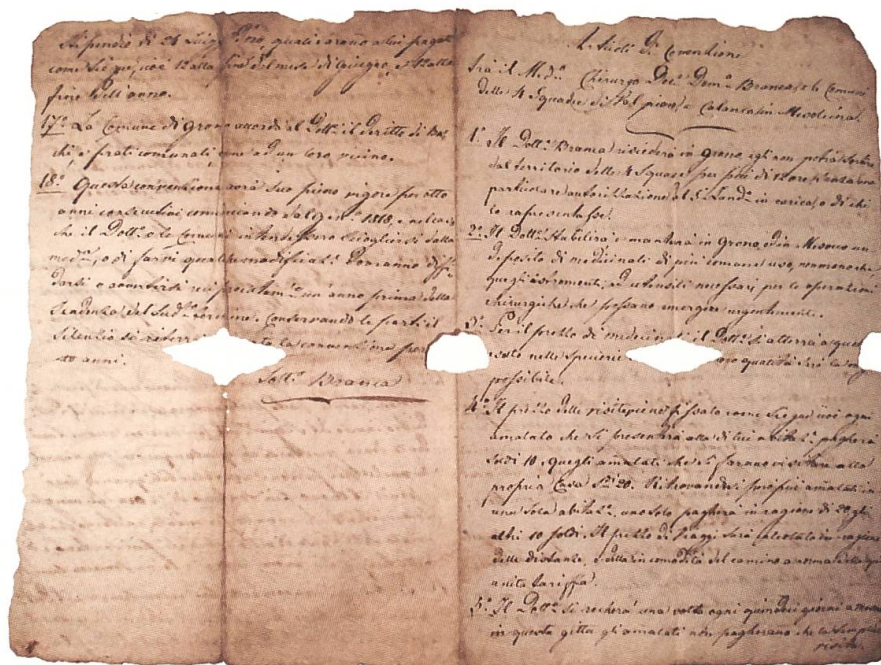 stipendio di 24 Luigi d'oro, quali saranno a lui pagati
come segue, cioè 12 alla fine del mese di Giugno, e 12 alla
fine dell'anno.
17.° La Comune di Grono accorda al Dott.e il diritto di
e frati comunali come ad un loro vicino.
18.° Questa convenzione avrà suo pieno vigore per otto
anni consecutivi cominciando dal 1818, e nel caso
che il Dott.e o le Comuni intendessero sciogliersi dalla
med.ma, o di farvi qualche dovranno
darsi o un anno prima della
scadenza del sud.o termine. Conservando le parti il
silenzio si la convenzione per
anni.
Sott.o Branca
Articoli di Convenzione
frà il Med.o Chirurgo Dot.e Dom.o Branca, e le Comuni
delle 4 Squadre di e Calanca in Mesolcina.
1.° Il Dott.e Branca risiederà in Grono, egli non potrà sortire
dal territorio delle 4 Squadre per più di 12 ore senza una
particolare autorizzazione del S.r Land.o in carica, o di chi
lo rapresentasse.
2.° Il Dott.e stabilirà e manterà in Grono, ed in Mesocco un
deposito di medicinali di più comune uso, nonmeno che
quegli istromenti, ed utensili necessarj per le operazioni
chirurgiche che possano emergere urgentemente.
3.° Per il prezzo di medicinali il Dott.e si atterrà a quel
costo nelle Speciarie qualità sarà la
possibile.
4.° Il prezzo delle visite viene fissato come segue, cioè ogni
amalato che si presenterà alla di lui abitaz.e pagherà
soldi 10, quegli amalati che si farano visitare alla
propria Casa S.di 20. Ritrovandosi più amalati in
una sola abitaz.e uno solo pagherà in ragione di 20 gli
altri 10 soldi. Il prezzo di viaggi sarà calcolato in ragione
delle distanze, e dalla incomodità del camino a norma della qui
unita tariffa.
5.° Il Dott.e si recherà una volta ogni quindici giorni a
in questa gitta gli amalati non pagherano che la semplice
visita.